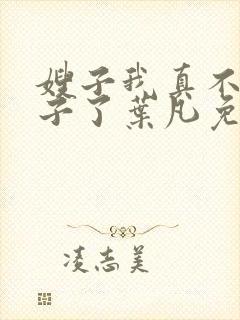 嫂子我真不
子了叶凡免
凌志美